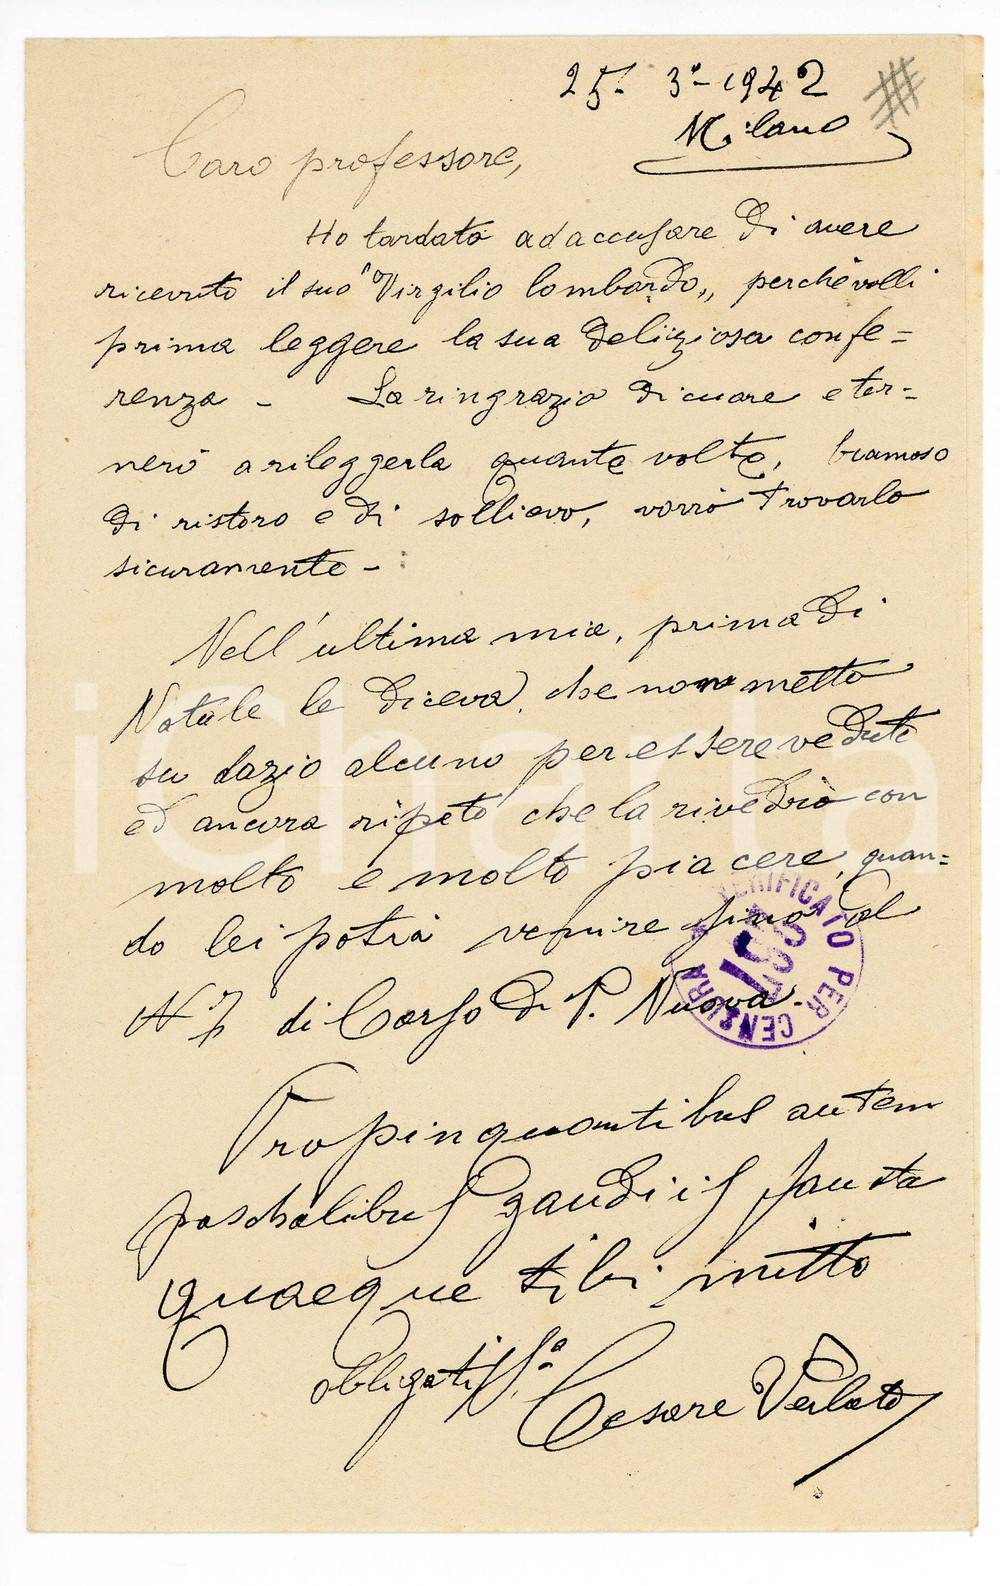 25- 3°- 1942
Milano
Caro professore,
Ho tardato ad accusare di avere
ricevuto il suo "Virgilio lombardo„ perchè volli
prima leggere la sua deliziosa confe=
renza - La ringrazio di cuore e tor=
nerò a rileggerla quante volte, bramoso
di ristoro e di sollievo, vorrò trovarlo
sicuramente -
Nell'ultima mia, prima di
Natale le diceva, che non metto
su dazio alcuno per essere veduto
ed ancora ripeto che la rivedrò con
molto e molto piacere, quan=
do lei potrà venire fino al
N° 7 di Corso di P. Nuova.
Propinquantibus autem
paschalibus gaudiis fausta
quaeque tibi mitto
obbligatiss.°
Cesare Verlato
VERIFICATO PER CENSURA
iCharta